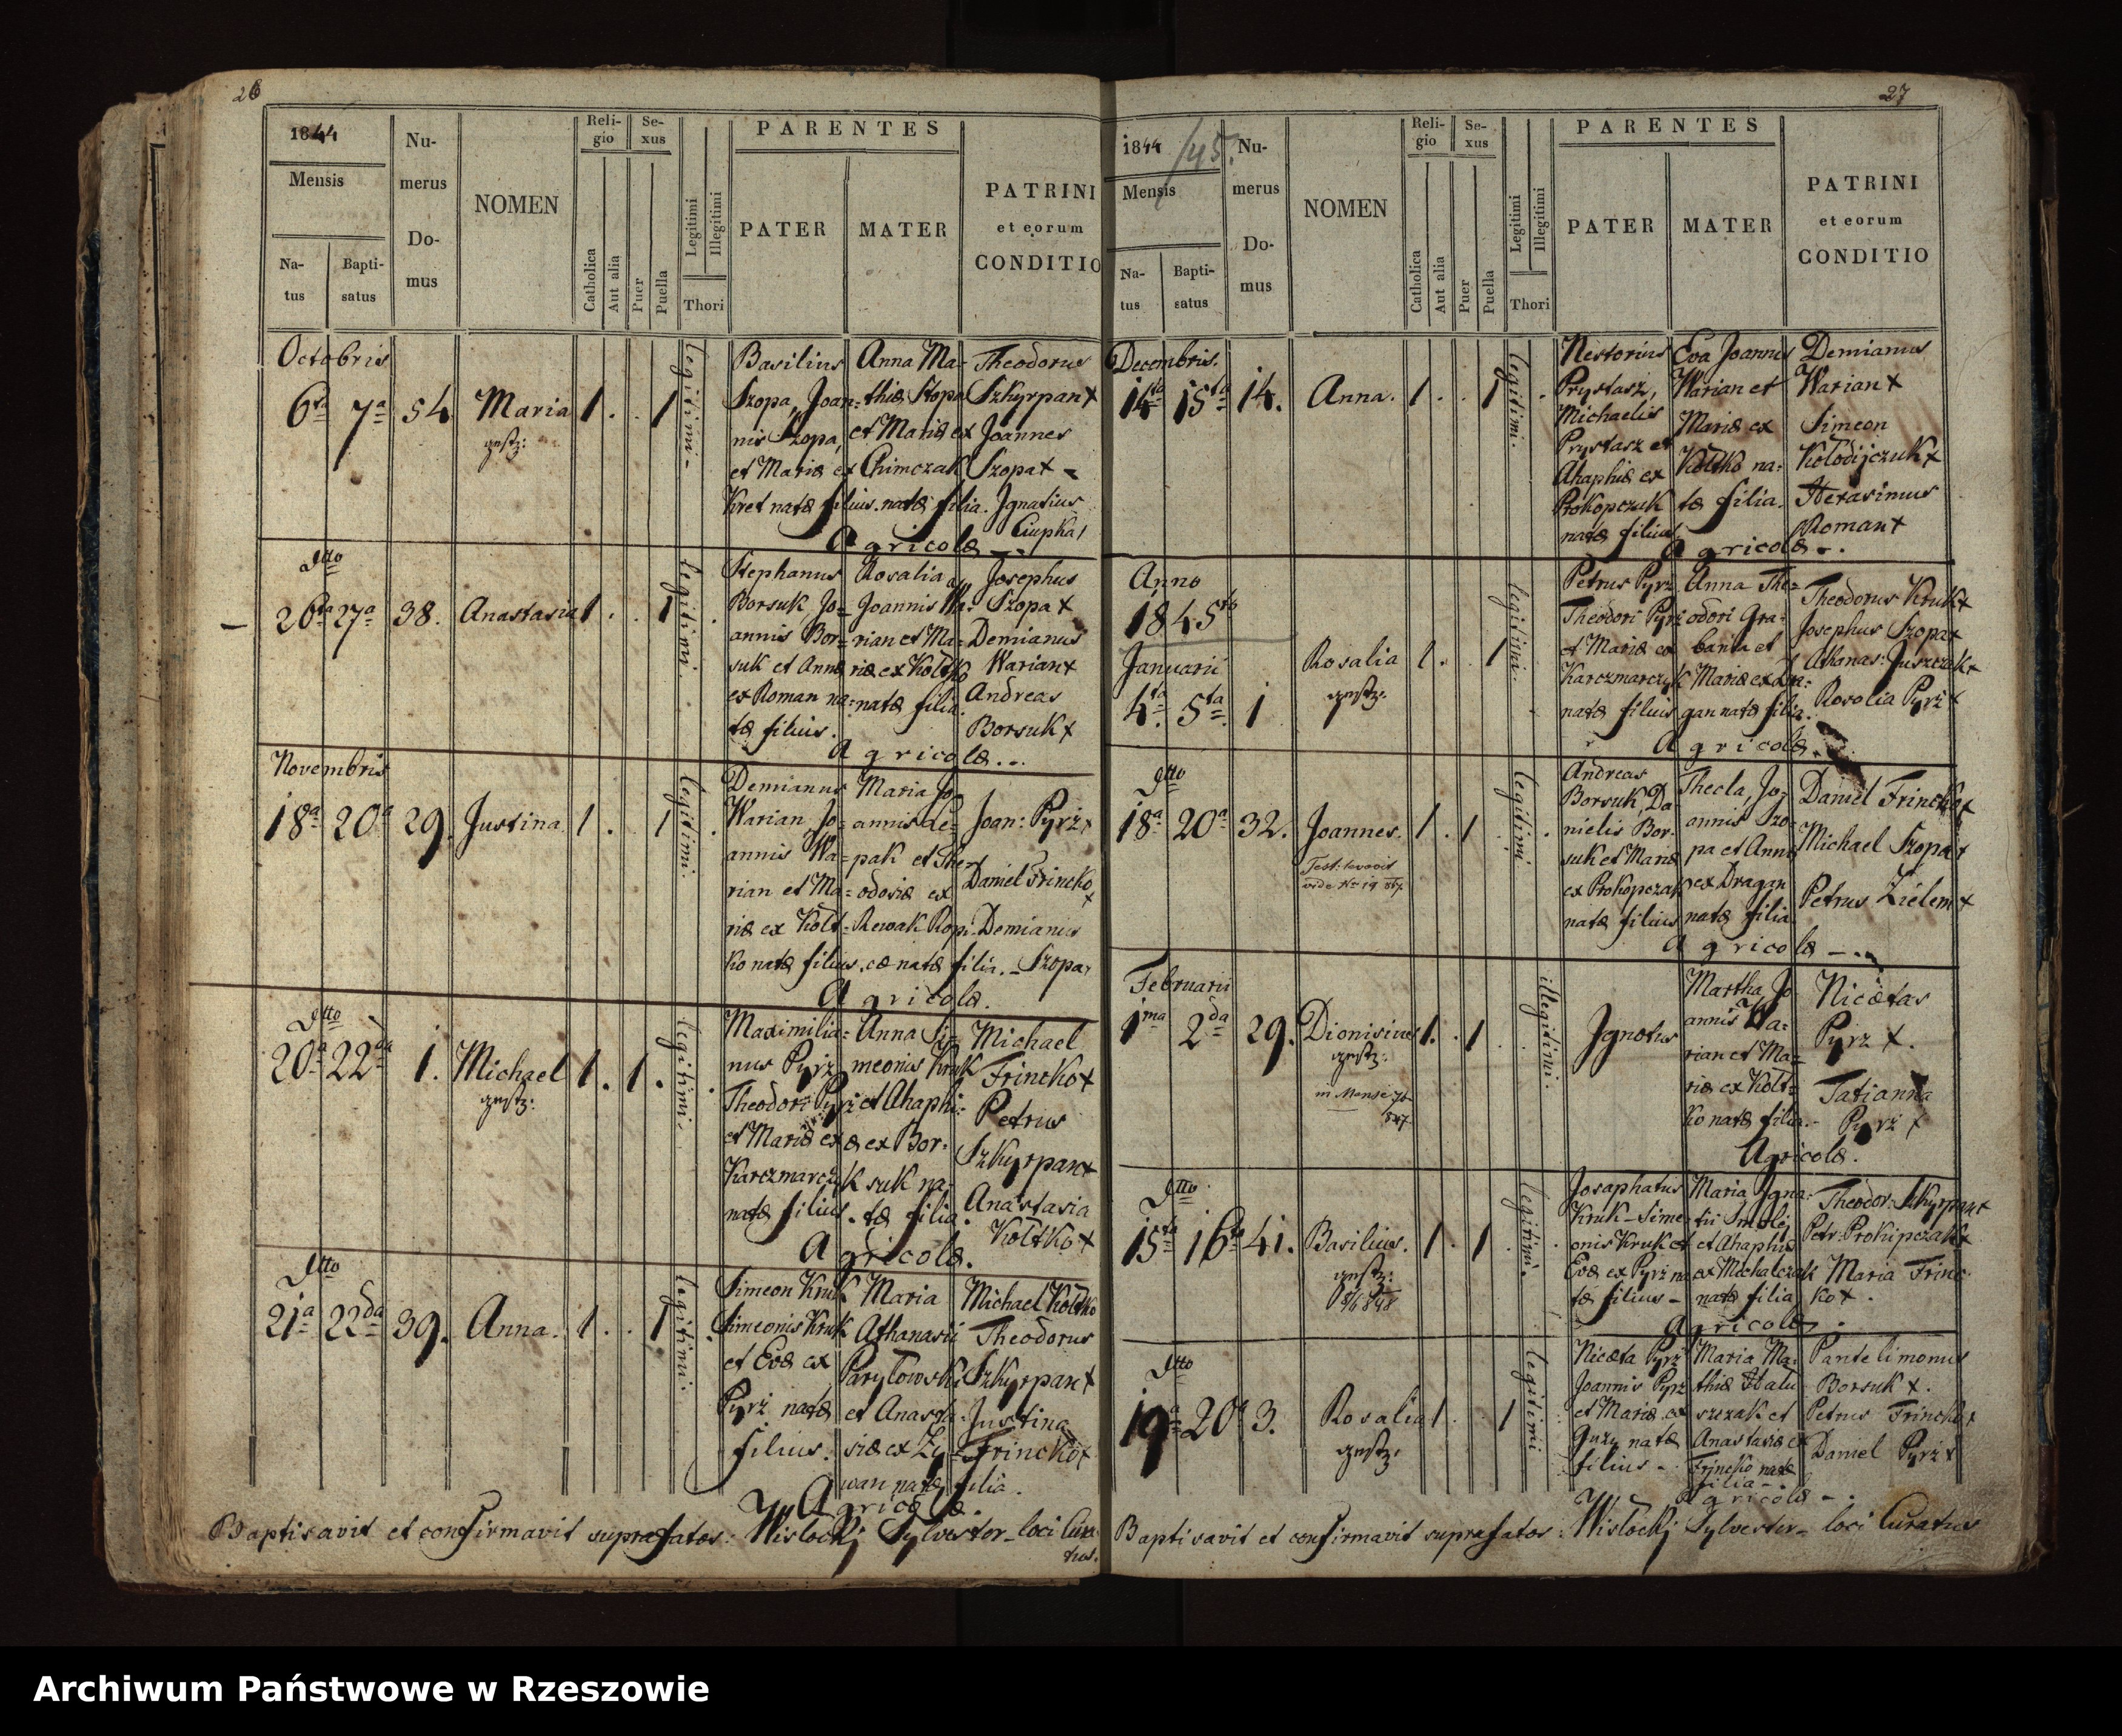 26
1844
Mensis
Na-
tus
Bapti-
satus
Nu-
merus
Do-
mus
NOMEN
Reli-
gio
Catholica
Aut alia
Se-
xus
Puer
Puella
Legitimi
Illegitimi
Thori
PARENTES
PATER
MATER
PATRINI
et eorum
CONDITIO
Octobris
6ta 7a 54 Maria 1 . . 1
gestz:
legitimi
Basilius
Szopa, Joan-
nis Szopa,
et Mariæ ex
Kret natæ filius.
Anna Ma-
thiæ Szopa
et Mariæ ex
Chimczak
natæ filia.
Theodorus
Szkyrpan x
Joannes
Szopa x
Ignatius
Ciupka
Agricolæ
Dtto
26ta 27a 38. Anastasia 1 . . 1
legitimi
Stephanus
Borsuk Jo-
annis Bor-
suk et Annæ
ex Roman na-
tæ filius.
Rosalia
Joannis Wa-
rian et Ma-
riæ ex Koltko
natæ filia.
Josephus
Szopa x
Demianus
Warian x
Andreas
Borsuk x
Agricolæ
Novembris
18a 20a 29. Justina. 1 . 1
legitimi.
Demianus
Warian Jo-
annis Wa-
rian et Ma-
riæ ex Kolt-
ko natæ filius.
Maria Jo-
annis Le-
pak et The-
odosiæ ex
Rewak Ropi-
cæ natæ filia.
Joan: Pyrz x
Daniel Frincko x
Demianus
Szopa x
Agricolæ.
Dtto
20a 22da 1. Michael 1. 1.
gestz:
legitimi.
Maximilia-
nus Pyrz
Theodori Pyrz
et Mariæ ex
Karczmarczyk
natæ filius.
Anna Si-
meonis Kruk
et Ahaphi-
æ ex Bor-
suk na-
tæ filia.
Michael
Frincko x
Petrus
Szkyrpan x
Anastasia
Koltko x
Agricolæ.
Dtto
21a 22da 39. Anna. 1. . 1
legitimi.
Simeon Kruk
Simeonis Kruk
et Evæ ex
Pyrz natæ
filius.
Maria
Athanasii
Parylowski
et Anasta-
siæ ex Zy-
wan natæ filia.
Michael Koltko
Theodorus
Szkyrpan x
Justina
Frincko x
Agricolæ.
Baptisavit et confirmavit suprafatos: Wislockj Sylvester - loci Cura-
tus.
27
1844 /45.
Mensis
Na-
tus
Bapti-
satus
Nu-
merus
Do-
mus
NOMEN
Reli-
gio
Catholica
Aut alia
Se-
xus
Puer
Puella
Legitimi
Illegitimi
Thori
PARENTES
PATER
MATER
PATRINI
et eorum
CONDITIO
Decembris.
14ta 15ta 14. Anna. 1 . . 1
legitimi.
Nestorius
Prystasz,
Michaelis
Prystasz et
Ahaphiæ ex
Prokopczuk
natæ filius
Eva Joannis
Warian et
Mariæ ex
Koltko na-
tæ filia.
Demianus
Warian x
Simeon
Kolodijczuk x
Herasimus
Roman x
Agricolæ
Anno
1845to
Januarii
4ta 5ta 1 Rosalia 1. . 1
gestz:
legitimi.
Petrus Pyrz
Theodori Pyrz
et Mariæ ex
Karczmarczyk
natæ filius
Anna The-
odori Gra-
bania et
Mariæ ex Dra-
gan natæ filia.
Theodorus Kruk x
Josephus Szopa x
Athanas: Juszczak x
Rosolia Pyrz x
Agricolæ.
Dtto
18a 20a 32. Joannes. 1 . 1
legitimi
Andreas
Borsuk, Da-
nielis Bor-
suk et Mariæ
ex Prokopczak
natæ filius
Thecla, Jo-
annis Szo-
pa et Annæ
ex Dragan
natæ filia
Daniel Frincko x
Michael Szopa x
Petrus Zielem x
Agricolæ
Februarii
1ma 2da 29. Dionisius 1. . 1
gestz:
in Mense
illegitimi.
Ignotus
Martha Jo-
annis Wa-
rian et Ma-
riæ ex Kolt-
ko natæ filia.
Nicetas
Pyrz x.
Tatianna
Pyrz x
Agricolæ.
Dtto
15ta 16ta 41. Basilius. 1 . 1
gestz:
legitimi.
Josaphatus
Kruk - Sime-
onis Kruk et
Evæ ex Pyrz na-
tæ filius -
Maria Igna-
tii Smolej
et Ahaphiæ
ex Michalczak
natæ filia
Theodor: Szkyrpan x
Petr: Prokipczak x
Maria Frinc-
ko x.
Agricolæ
Dtto
19a 20a 3. Rosalia 1 . . 1
gestz:
legitimi
Nicæta Pyrz
Joannis Pyrz
et Mariæ ex
Guzy natæ
filius -
Maria Ma-
thiæ Halu-
szczak et
Anastasiæ ex
Frincko natæ
filia -
Pantelimonus
Borsuk x.
Petrus Frincko x
Daniel Pyrz x
Agricolæ
Baptisavit et confirmavit suprafatos: Wislockj Sylvester - loci Curatus
Archiwum Państwowe w Rzeszowie